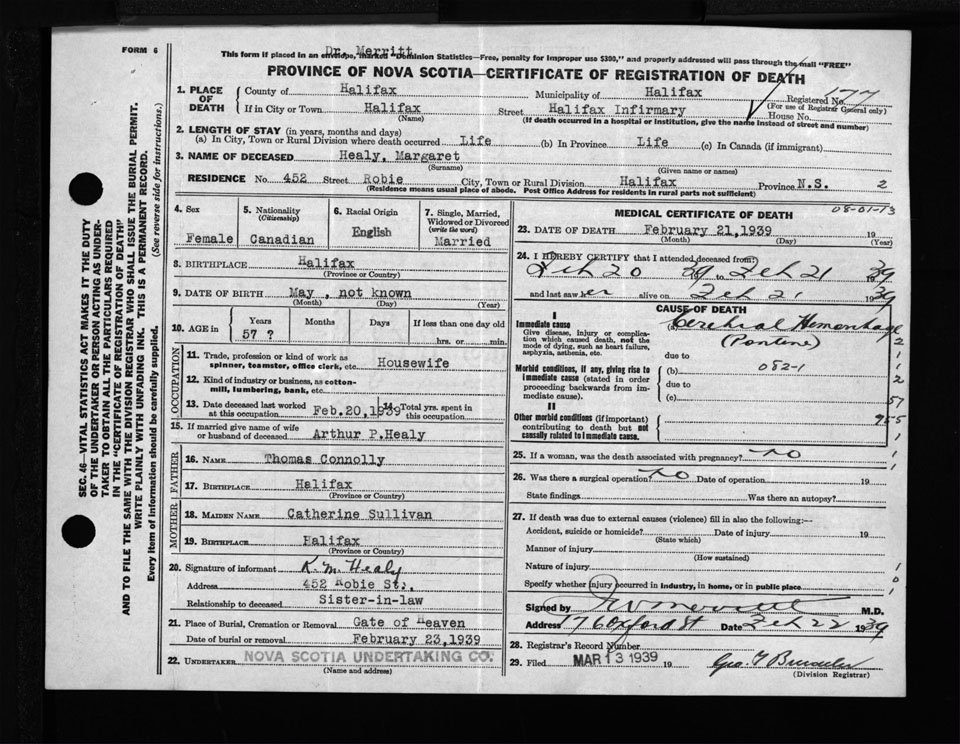 FORM 6
Dr. Merritt
This form if placed in an envelope, marked "Dominion Statistics—Free, penalty for improper use $300," and properly addressed will pass through the mail "FREE"
PROVINCE OF NOVA SCOTIA—CERTIFICATE OF REGISTRATION OF DEATH
1. PLACE OF DEATH
County of Halifax Municipality of Halifax Registered No. 177
(For use of Registrar General only)
If in City or Town Halifax Street Halifax Infirmary House No.
(Name) (If death occurred in a hospital or institution, give the name instead of street and number)
2. LENGTH OF STAY (in years, months and days)
(a) In City, Town or Rural Division where death occurred Life (b) In Province Life (c) In Canada (if immigrant)
3. NAME OF DECEASED Healy, Margaret
(Surname) (Given name or names)
RESIDENCE No. 452 Street Robie City, Town or Rural Division Halifax Province N.S. 2
(Residence means usual place of abode. Post Office Address for residents in rural parts not sufficient)
4. Sex
Female
5. Nationality
(Citizenship)
Canadian
6. Racial Origin
English
7. Single, Married, Widowed or Divorced
(write the word)
Married
8. BIRTHPLACE Halifax
(Province or Country)
9. DATE OF BIRTH May , not known
(Month) (Day) (Year)
10. AGE in Years Months Days If less than one day old
57 ? hrs. or min.
OCCUPATION
11. Trade, profession or kind of work as spinner, teamster, office clerk, etc. Housewife
12. Kind of industry or business, as cotton-mill, lumbering, bank, etc.
13. Date deceased last worked at this occupation Feb.20,1939 14 Total yrs. spent in this occupation
15. If married give name of wife or husband of deceased Arthur P.Healy
FATHER
16. NAME Thomas Connolly
17. BIRTHPLACE Halifax
(Province or Country)
MOTHER
18. MAIDEN NAME Catherine Sullivan
19. BIRTHPLACE Halifax
(Province or Country)
20. Signature of informant K. M. Healy
Address 452 Robie St.,
Relationship to deceased Sister-in-law
21. Place of Burial, Cremation or Removal Gate of Heaven
Date of burial or removal February 23,1939
22. UNDERTAKER NOVA SCOTIA UNDERTAKING CO.
(Name and address)
MEDICAL CERTIFICATE OF DEATH 08-01-13
23. DATE OF DEATH February 21,1939 19
(Month) (Day) (Year)
24. I HEREBY CERTIFY that I attended deceased from:
Feb 20 39 to Feb 21 39
and last saw her alive on Feb 21 1939
CAUSE OF DEATH
I
Immediate cause
Give disease, injury or complication which caused death, not the mode of dying, such as heart failure, asphyxia, asthenia, etc.
Cerebral Hemorrhage
(Pontine)
due to
Morbid conditions, if any, giving rise to immediate cause (stated in order proceeding backwards from immediate cause).
(b) 082-1
due to
(c)
II
Other morbid conditions (if important) contributing to death but not causally related to immediate cause.
2
1
1
2
57
955
1
25. If a woman, was the death associated with pregnancy? no
26. Was there a surgical operation? no Date of operation 19
State findings Was there an autopsy?
27. If death was due to external causes (violence) fill in also the following:—
Accident, suicide or homicide? Date of injury 19
(State which)
Manner of injury
(How sustained)
Nature of injury
Specify whether injury occurred in industry, in home, or in public place
Signed by M.D.
Address 176 Oxford St Date Feb 22 1939
28. Registrar's Record Number
29. Filed MAR 13 1939 19
(Division Registrar)
SEC. 46—VITAL STATISTICS ACT MAKES IT THE DUTY
OF THE UNDERTAKER OR PERSON ACTING AS UNDER-
TAKER TO OBTAIN ALL THE PARTICULARS REQUIRED
IN THE "CERTIFICATE OF REGISTRATION OF DEATH"
AND TO FILE THE SAME WITH THE DIVISION REGISTRAR WHO SHALL ISSUE THE BURIAL PERMIT.
WRITE PLAINLY WITH UNFADING INK. THIS IS A PERMANENT RECORD.
Every item of information should be carefully supplied. (See reverse side for instructions.)